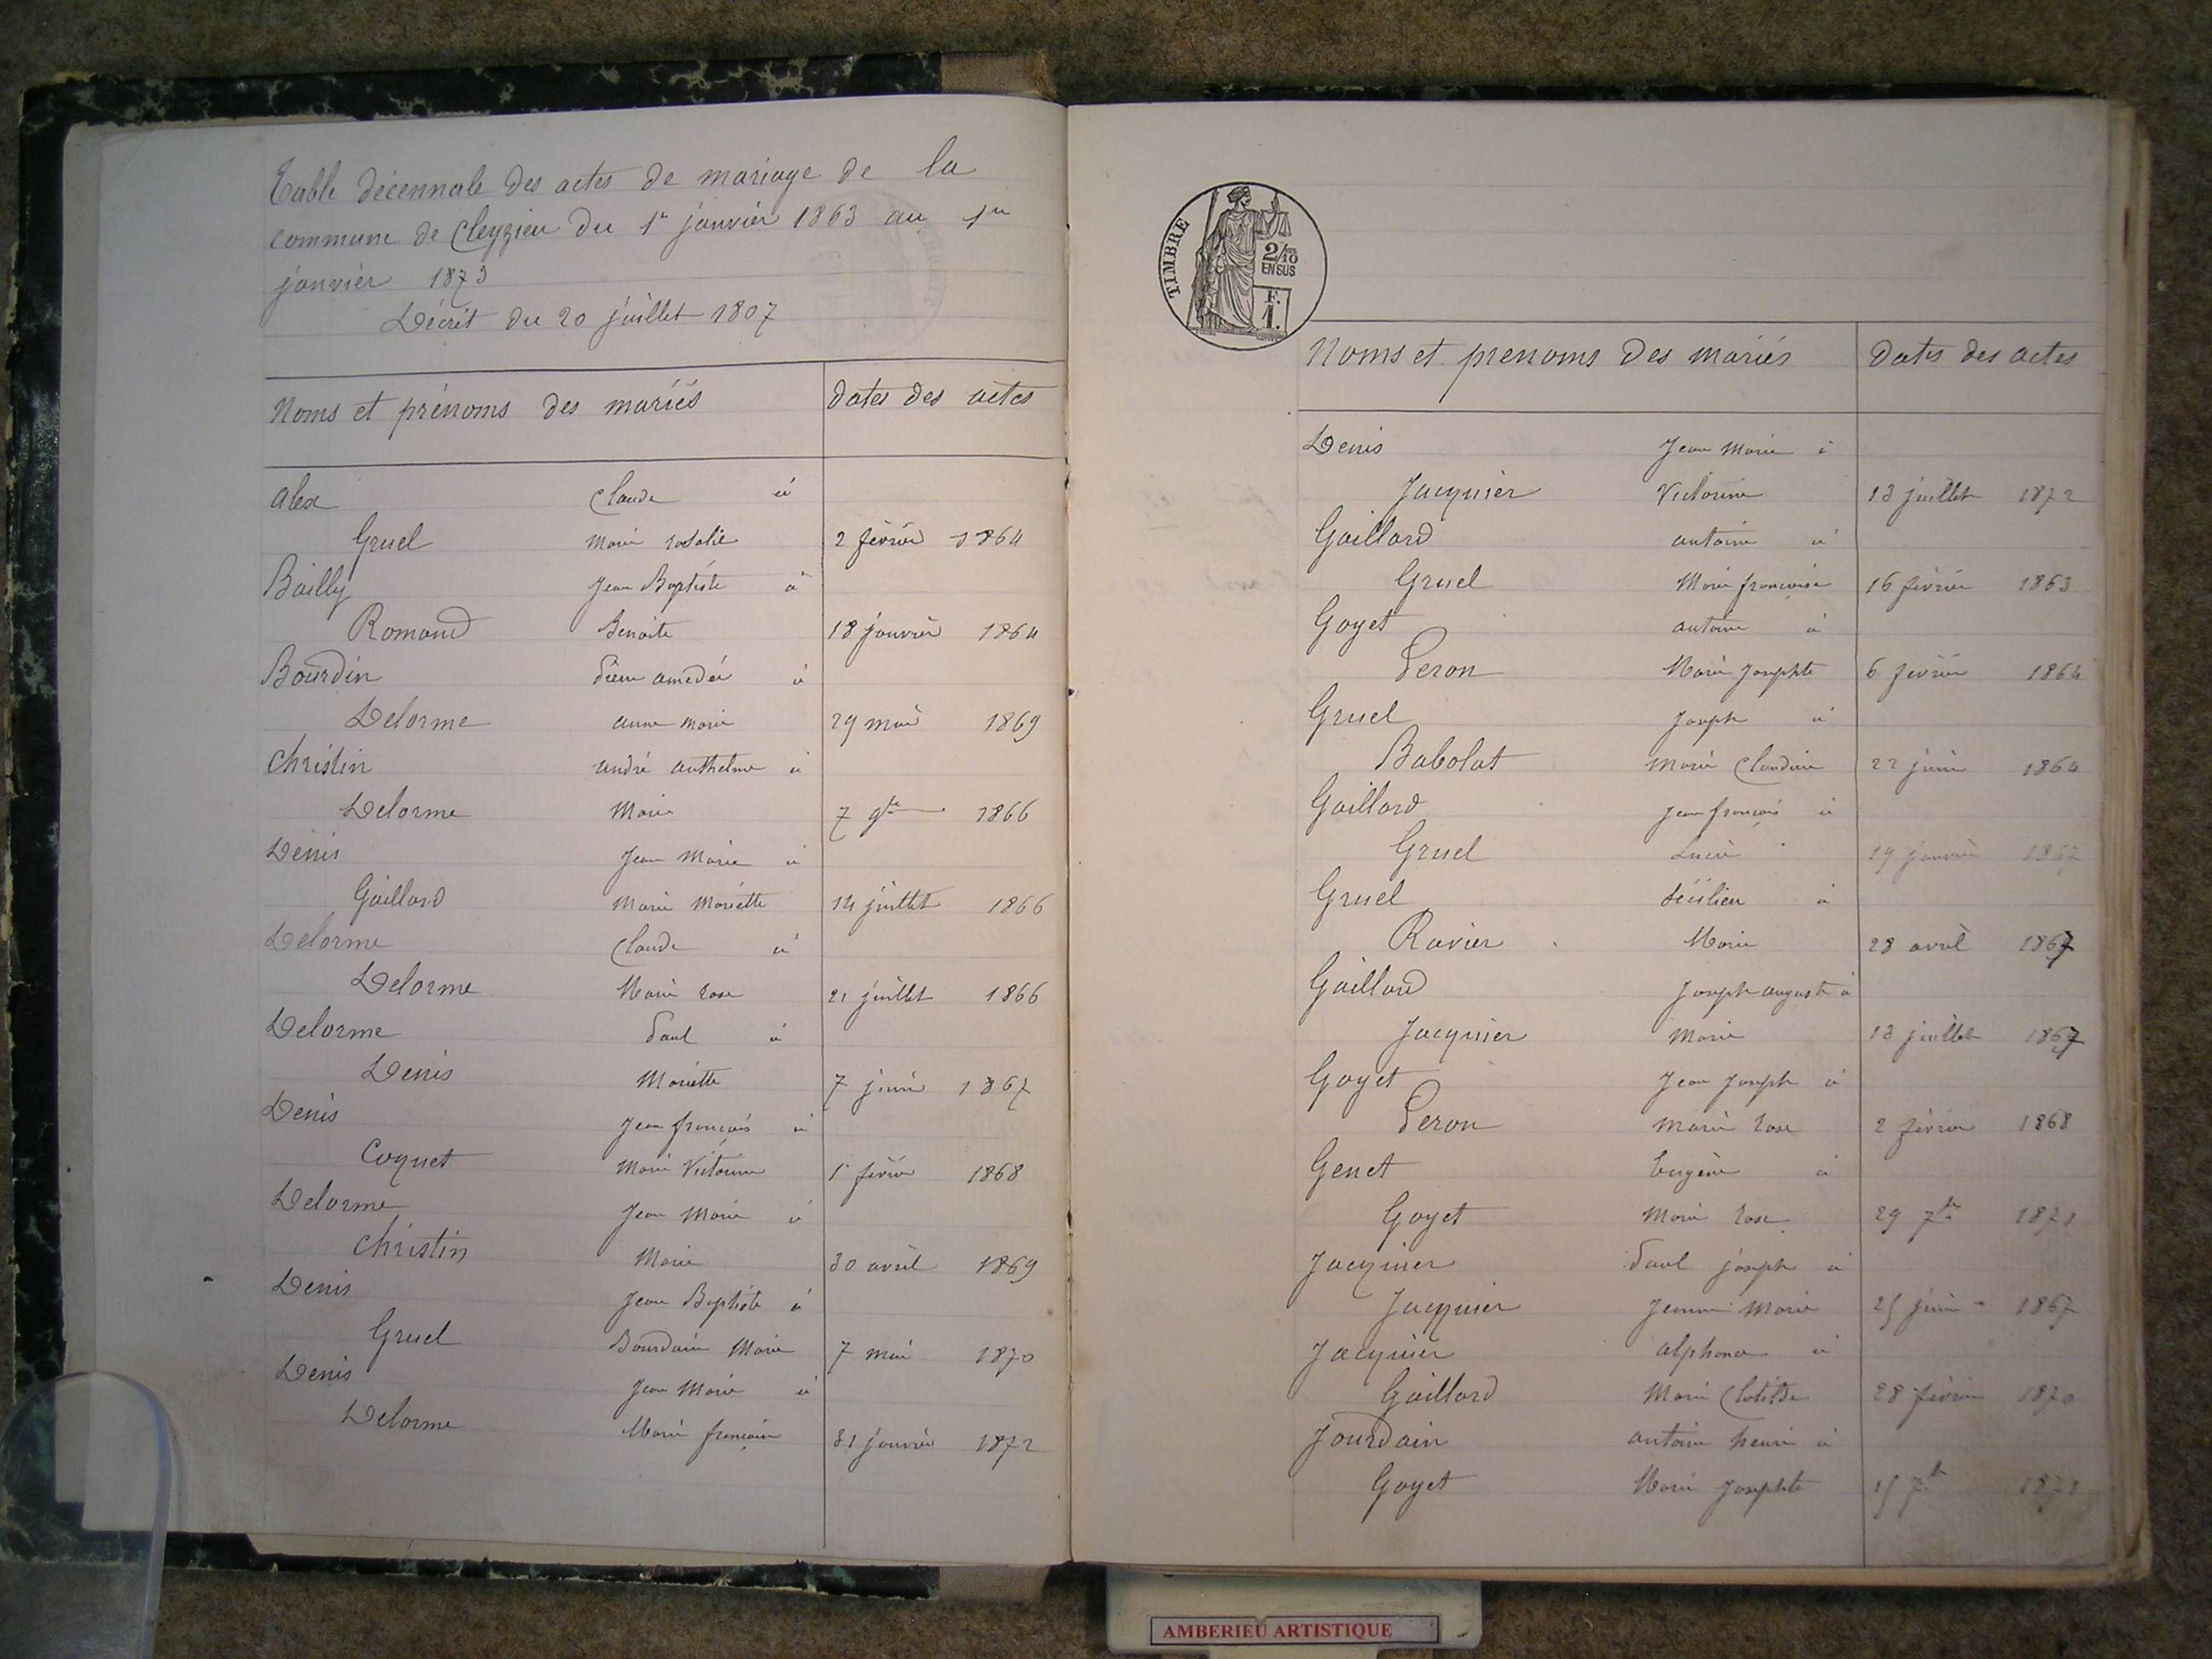 Table décennale des actes de mariage de la
commune de Cleyzieu du 1er janvier 1863 au 1er
janvier 1873
Décret du 20 juillet 1807
Noms et prénoms des mariés Dates des actes
Alex Claude à
Gruel Marie rosalie 2 février 1864
Bailly Jean Baptiste à
Romand Benoite 18 janvier 1864
Bourdin Pierre amédée à
Delorme anne marie 29 mai 1869
Christin andré anthelme à
Delorme Marie 7 9bre 1866
Denis Jean Marie à
Gaillard Marie Mariette 14 juillet 1866
Delorme Claude à
Delorme Marie rose 21 juillet 1866
Delorme Paul à
Denis Mariette 7 juin 1867
Denis Jean françois à
Coquet Marie Victorine 1r février 1868
Delorme Jean Marie à
Christin Marie 30 avril 1869
Denis Jean Baptiste à
Gruel Bourdain Marie 7 mai 1870
Denis Jean Marie à
Delorme Marie françoise 31 janvier 1872
TIMBRE
2/10
EN SUS
F.
1.
Noms et prenoms des mariés Dates des actes
Denis Jean Marie à
Jacquier Victorine 13 juillet 1872
Gaillard antoine à
Gruel Marie françoise 16 février 1863
Goyet antoine à
Peron Marie Josephte 6 février 1864
Gruel Joseph à
Babolat Marie Claudine 22 juin 1864
Gaillard Jean françois à
Gruel Lucie 19 janvier 1867
Gruel à
Ravier Marie 28 avril 1867
Gaillard Joseph auguste à
Jacquier Marie 13 juillet 1867
Goyet Jean Joseph à
Peron Marie rose 2 février 1868
Genet Eugène à
Goyet Marie rose 29 7bre 1871
Jacquier Paul joseph à
Jacquier Jeanne Marie 25 juin 1867
Jacquier alphonse à
Gaillard Marie Clotilde 28 février 1870
Jourdain antoine henri à
Goyet Marie Josephte 15 7bre 1871
AMBERIEU ARTISTIQUE